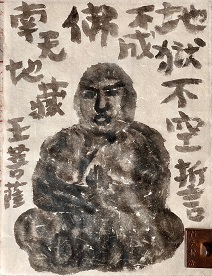 地獄不空誓
不成
佛
南无
地藏
王菩薩